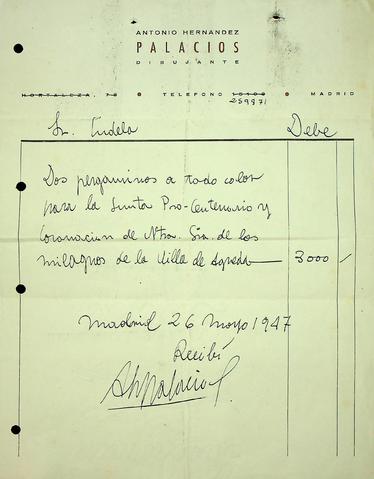 ANTONIO HERNANDEZ
PALACIOS
DIBUJANTE
HORTALEZA, 78 • TELEFONO 10106 • MADRID
259871
Sr. Tudela Debe
Dos pergaminos a todo color
para la Junta Pro-Centenario y
Coronacion de Ntra. Sra. de los
milagros de la Villa de Agreda — 3000 /
Madrid 26 Mayo 1947
Recibí
AHPalacios